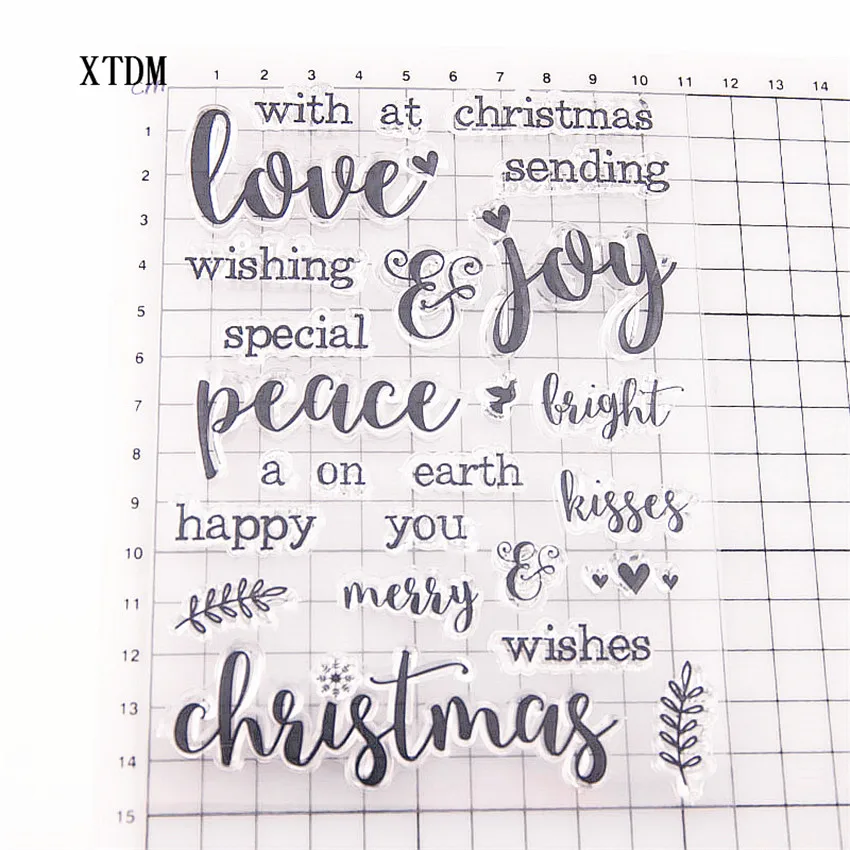 XTDM
cm
1 2 3 4 5 6 7 8 9 10 11 12 13 14
with at christmas
1
love
sending
2
3
wishing & joy
4
5
special
6
peace bright
7
a on earth
8
kisses
9
happy you
10
&
merry
11
wishes
12
christmas
13
14
15